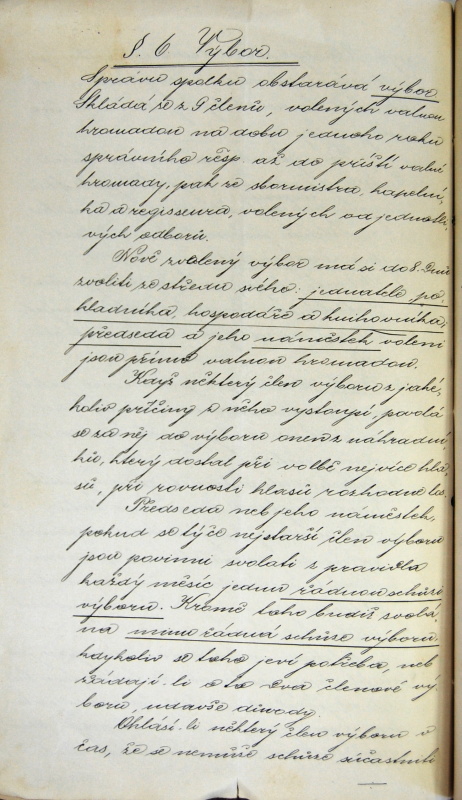 §. 6. Výbor.
Správu spolku obstarává výbor
Skládá se z 9 členů, volených valnou
hromadou na dobu jednoho roku
správního resp. až do příští valné
hromady, pak ze sbormistra, kapelní-
ka a regisseura, volených od jednotli-
vých odborů.
Nově zvolený výbor má si do 8. dnů
zvoliti ze středu svého: jednatele, po-
kladníka, hospodáře a knihovníka,
předseda a jeho náměstek voleni
jsou přímo valnou hromadou.
Když některý člen výboru z jaké-
koliv příčiny z něho vystoupí, povolá
se za něj do výboru onen z náhradní-
ků, který dostal při volbě nejvíce hla-
sů, při rovnosti hlasů rozhodne los.
Předseda neb jeho náměstek,
pokud se týče nejstarší člen výboru
jsou povinni svolati z pravidla
každý měsíc jednu řádnou schůzi
výboru. Kromě toho budiž svolá-
na mimořádná schůze výboru,
kdykoliv se toho jeví potřeba, neb
žádají-li o to dva členové vý-
boru, udavše důvody.
Ohlásí-li některý člen výboru v
čas, že se nemůže schůze súčastniti